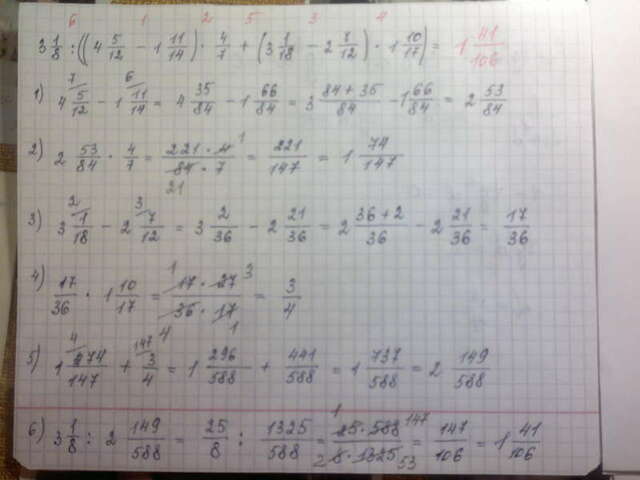 6 1 2 5 3 4
3 1/8 : ((4 5/12 - 1 11/14) · 4/7 + (3 1/18 - 2 7/12) · 1 10/17) = 1 41/106
1) 4 5/12 - 1 11/14 = 4 35/84 - 1 66/84 = 3 84+35/84 - 1 66/84 = 2 53/84
2) 2 53/84 · 4/7 = 221·4/84·7 = 221/147 = 1 74/147
3) 3 1/18 - 2 7/12 = 3 2/36 - 2 21/36 = 2 36+2/36 - 2 21/36 = 17/36
4) 17/36 · 1 10/17 = 17·27/36·17 = 3/4
5) 1 74/147 + 3/4 = 1 296/588 + 441/588 = 1 737/588 = 2 149/588
6) 3 1/8 : 2 149/588 = 25/8 : 1325/588 = 25·588/8·1325 = 147/106 = 1 41/106